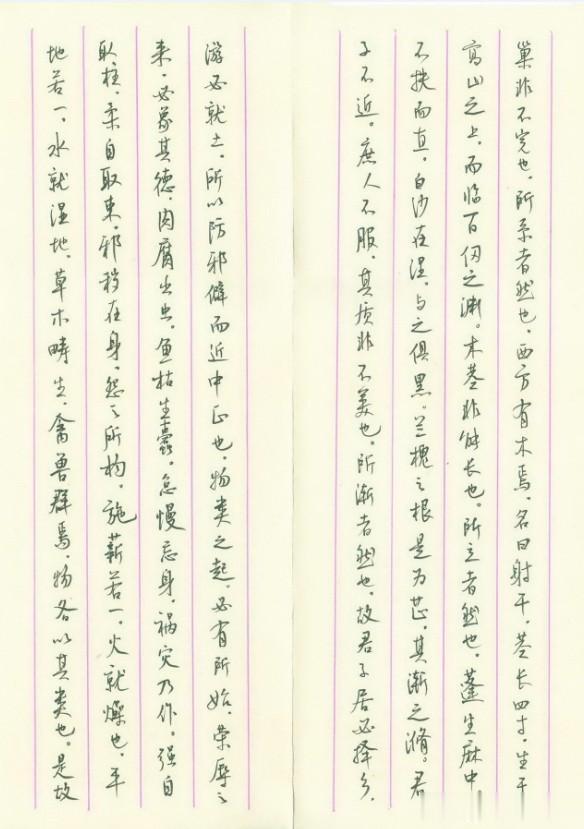 巢非不完也。所系者然也。西方有木焉。名曰射干。茎长四寸。生于
高山之上。而临百仞之渊。木茎非能长也。所立者然也。蓬生麻中
不扶而直。白沙在涅。与之俱黑。兰槐之根是为芷。其渐之滫。君
子不近。庶人不服。其质非不美也。所渐者然也。故君子居必择乡。
游必就士。所以防邪僻而近中正也。物类之起。必有所始。荣辱之
来。必象其德。肉腐出虫。鱼枯生蠹。怠慢忘身。祸灾乃作。强自
取柱。柔自取束。邪秽在身。怨之所构。施薪若一。火就燥也。平
地若一。水就湿地。草木畴生。禽兽群焉。物各以其类也。是故